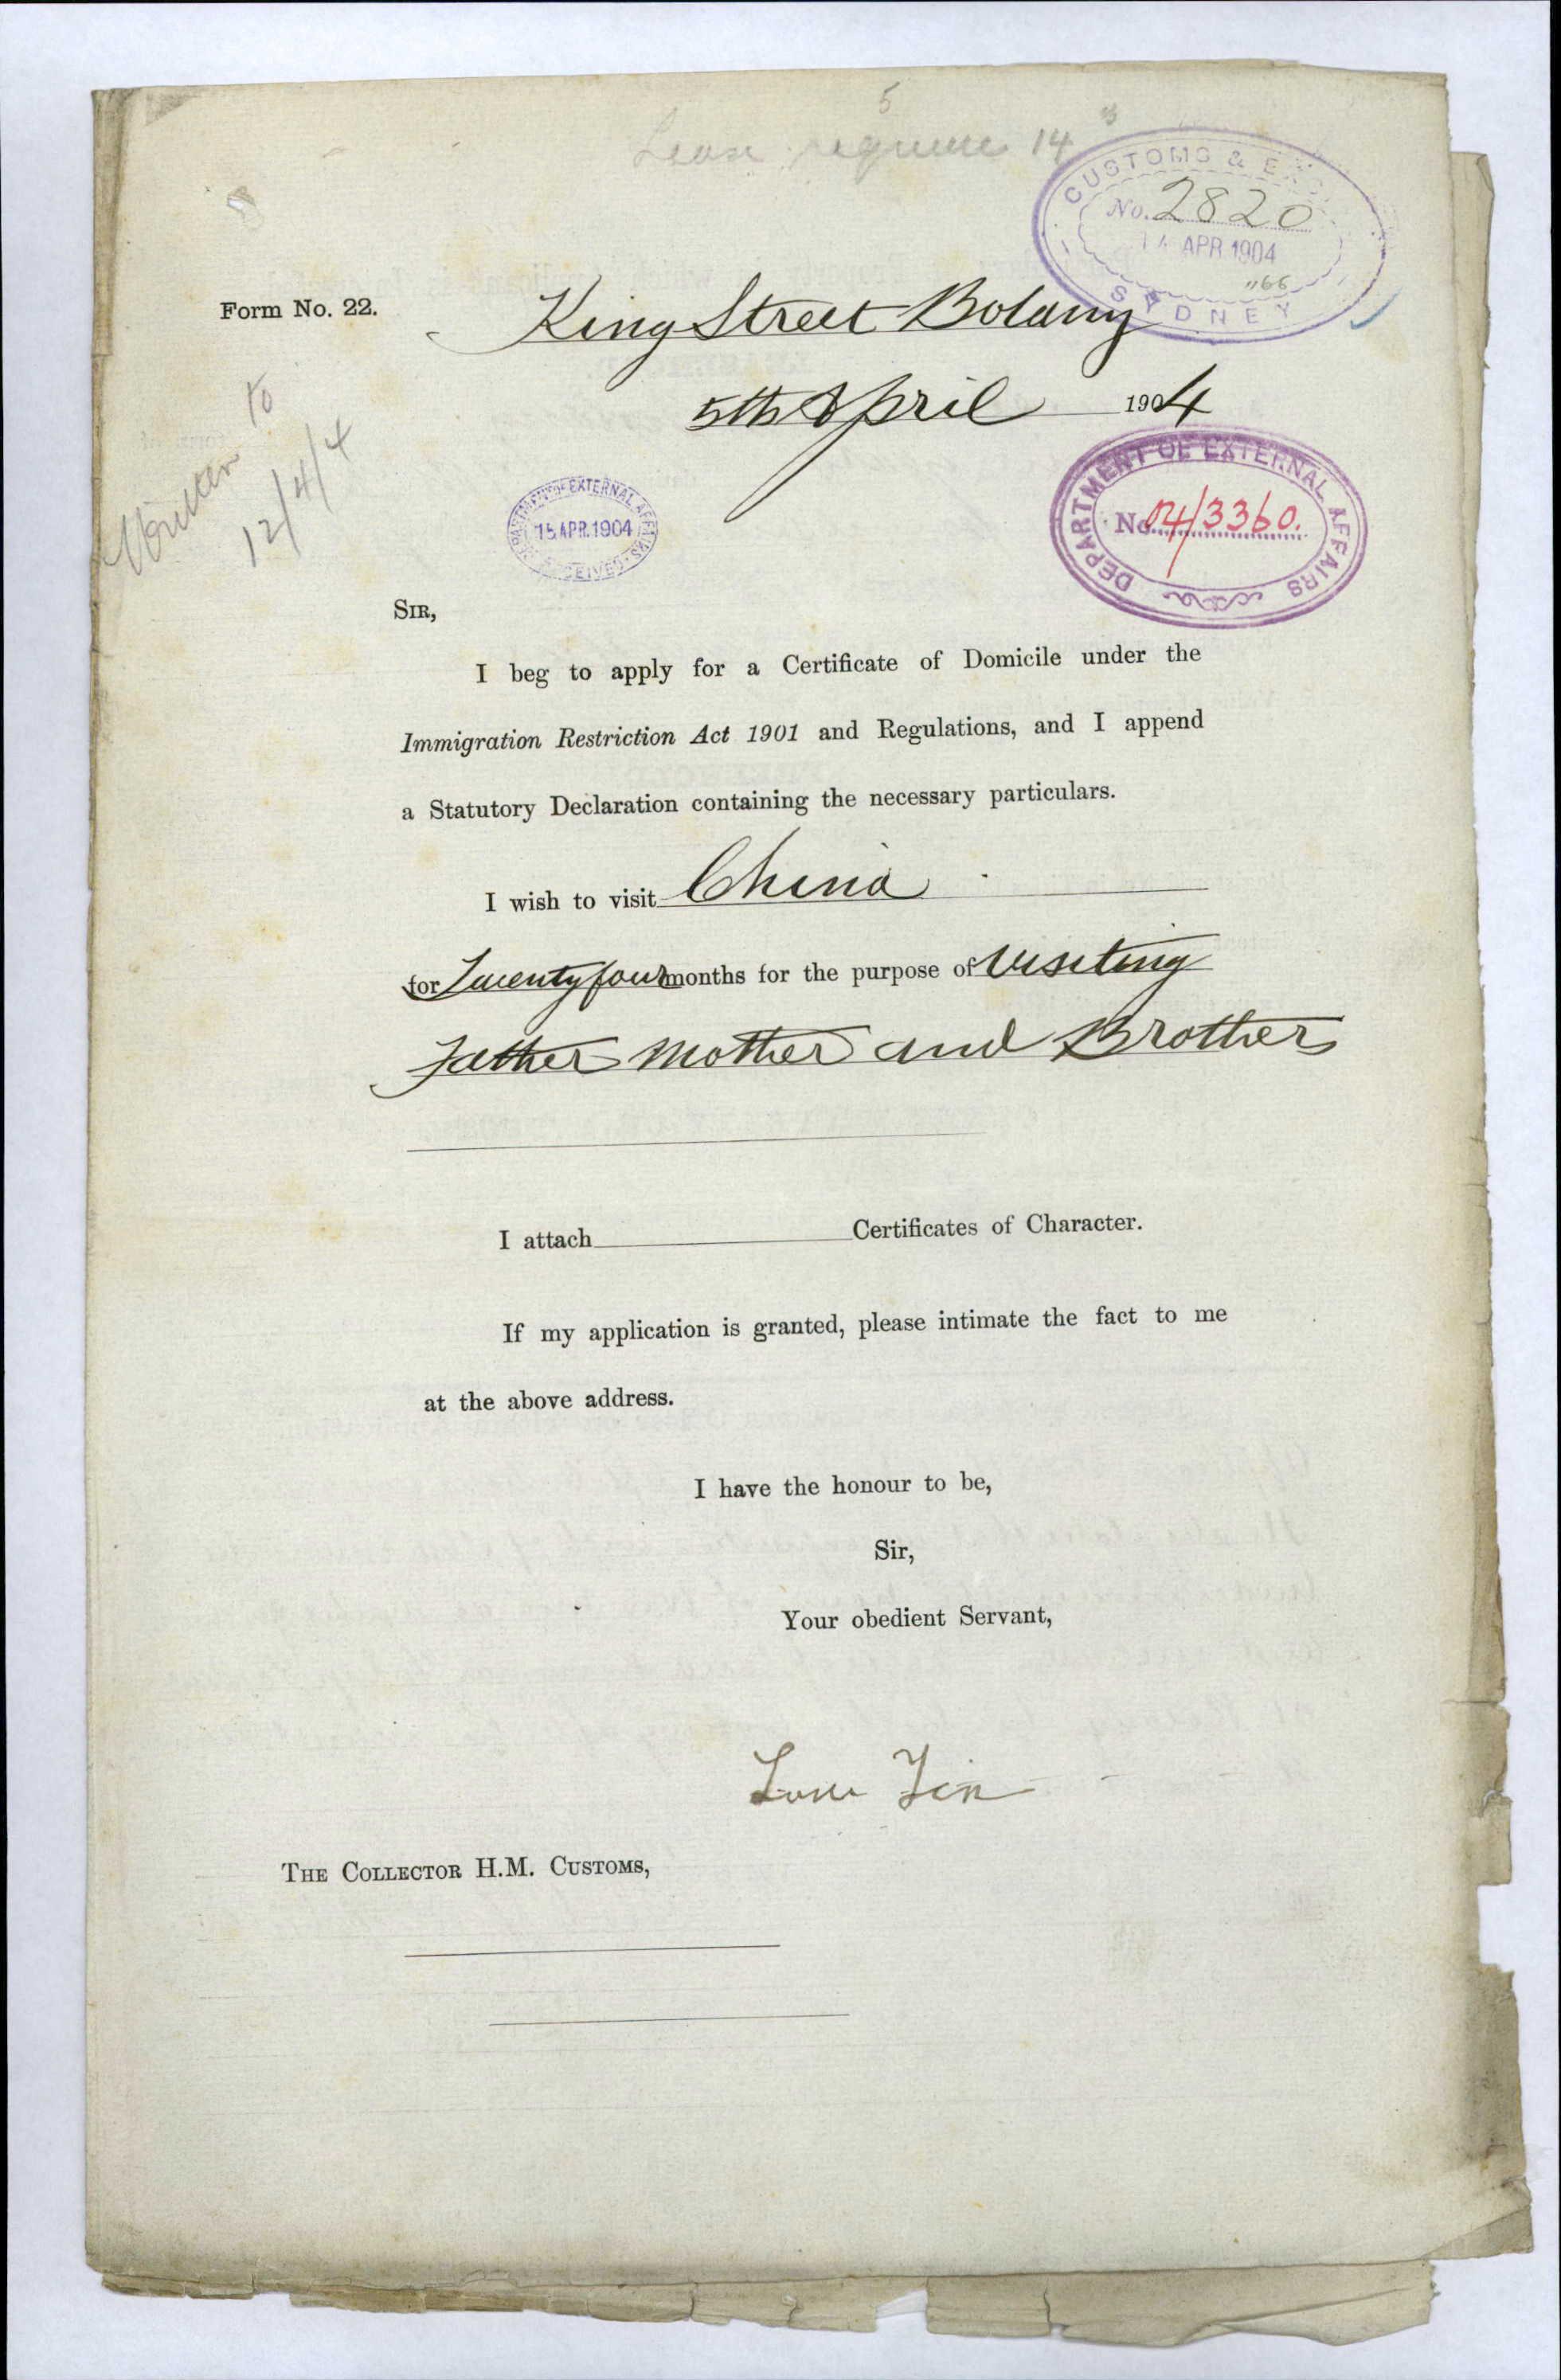 5
14
CUSTOMS & EXC
No. 2820
14 APR 1904
"66
SYDNEY
Form No. 22.
King Street Botany
5th April 1904
Written to
12/4/4
DEPARTMENT OF EXTERNAL AFFAIRS
15 APR. 1904
RECEIVED
DEPARTMENT OF EXTERNAL AFFAIRS
No. 04/3360.
SIR,
I beg to apply for a Certificate of Domicile under the
Immigration Restriction Act 1901 and Regulations, and I append
a Statutory Declaration containing the necessary particulars.
I wish to visit China
for Twenty four months for the purpose of Visiting
Father Mother and Brothers
I attach Certificates of Character.
If my application is granted, please intimate the fact to me
at the above address.
I have the honour to be,
Sir,
Your obedient Servant,
THE COLLECTOR H.M. CUSTOMS,